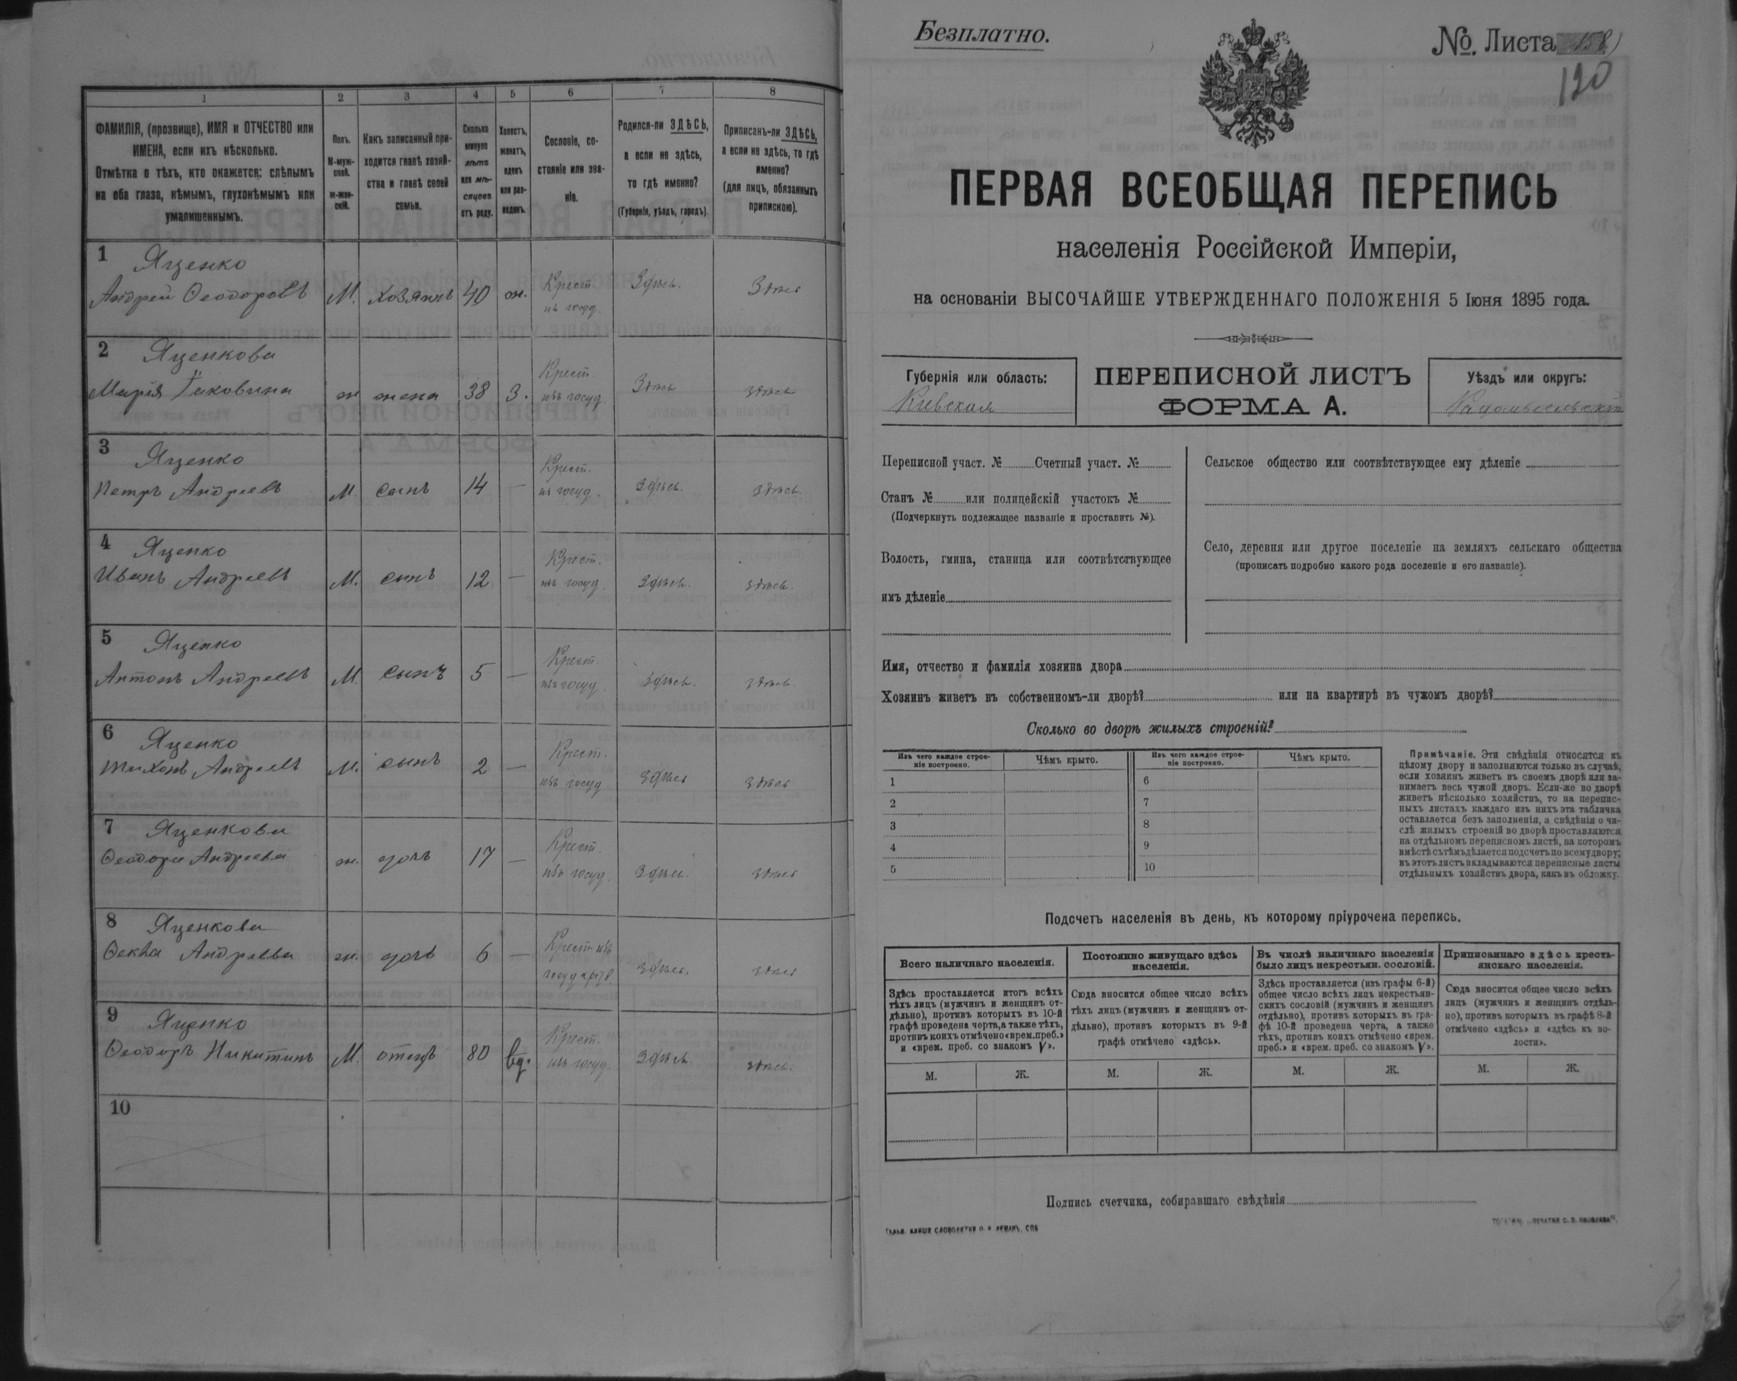 1
2
3
4
5
6
7
8
ФАМИЛІЯ, (прозвище), ИМЯ и ОТЧЕСТВО или
ИМЕНА, если ихъ нѣсколько.
Отмѣтка о тѣхъ, кто окажется: слѣпымъ
на оба глаза, нѣмымъ, глухонѣмымъ или
умалишеннымъ.
Полъ.
М-муж-
ской.
ж-жен-
скій.
Какъ записанный при-
ходится главѣ хозяй-
ства и главѣ своей
семьи.
Сколько
минуло
лѣтъ
или мѣ-
сяцевъ
отъ роду.
Холостъ,
женатъ,
вдовъ
или раз-
веденъ.
Сословіе, со-
стояніе или зва-
ніе.
Родился-ли ЗДѢСЬ,
а если не здѣсь,
то гдѣ именно?
(Губернія, уѣздъ, городъ).
Приписанъ-ли ЗДѢСЬ,
а если не здѣсь, то гдѣ
именно?
(для лицъ, обязанныхъ
припискою).
1 Яценко
Андрей Ѳеодоровъ М. хозяинъ 40 ж. Крест. изъ госуд. Здѣсь. Здѣсь
2 Яценкова
Марія Яковлина ж жена 38 З. Крест. изъ госуд. Здѣсь здѣсь
3 Яценко
Петръ Андреевъ М сынъ 14 — Крест. изъ госуд. Здѣсь. здѣсь.
4 Яценко
Иванъ Андреевъ М. сынъ 12 — Крест. изъ госуд. Здѣсь. здѣсь.
5 Яценко
Антонъ Андреевъ М. сынъ 5 — Крест. изъ госуд. здѣсь. здѣсь.
6 Яценко
Тихонъ Андреевъ М. сынъ 2 — Крест. изъ госуд здѣсь здѣсь
7 Яценкова
Ѳеодора Андреева ж. дочь 17 — Крест. изъ госуд. Здѣсь. здѣсь
8 Яценкова
Ѳекла Андреева ж. дочь 6 — Крест изъ государств. здѣсь. здѣсь
9 Яценко
Ѳеодоръ Никитинъ М. отецъ 80 вд. Крест. изъ госуд. Здѣсь. здѣсь.
10
Безплатно.
№. Листа 158)
120
ПЕРВАЯ ВСЕОБЩАЯ ПЕРЕПИСЬ
населенія Россійской Имперіи,
на основаніи ВЫСОЧАЙШЕ УТВЕРЖДЕННАГО ПОЛОЖЕНІЯ 5 Іюня 1895 года.
Губернія или область:
Кіевская
ПЕРЕПИСНОЙ ЛИСТЪ
ФОРМА А.
Уѣздъ или округъ:
Радомысльскій
Переписной участ. № Счетный участ. №
Станъ № или полицейскій участокъ №
(Подчеркнуть подлежащее названіе и проставить №).
Волость, гмина, станица или соотвѣтствующее
имъ дѣленіе
Сельское общество или соотвѣтствующее ему дѣленіе
Село, деревня или другое поселеніе на земляхъ сельскаго общества
(прописать подробно какого рода поселеніе и его названіе).
Имя, отчество и фамилія хозяина двора
Хозяинъ живетъ въ собственномъ-ли дворѣ? или на квартирѣ въ чужомъ дворѣ?
Сколько во дворѣ жилыхъ строеній?
Изъ чего каждое строе-
ніе построено.
Чѣмъ крыто.
Изъ чего каждое строе-
ніе построено.
Чѣмъ крыто.
1
2
3
4
5
6
7
8
9
10
Примѣчаніе. Эти свѣдѣнія относятся къ
цѣлому двору и заполняются только въ случаѣ,
если хозяинъ живетъ въ своемъ дворѣ или за-
нимаетъ весь чужой дворъ. Если-же во дворѣ
живетъ нѣсколько хозяйствъ, то на перепис-
ныхъ листахъ каждаго изъ нихъ эта табличка
оставляется безъ заполненія, а свѣдѣнія о чи-
слѣ жилыхъ строеній во дворѣ проставляются
на отдѣльномъ переписномъ листѣ, на которомъ
вмѣстѣ съ тѣмъ дѣлается подсчетъ по всему двору;
въ этотъ листъ вкладываются переписные листы
отдѣльныхъ хозяйствъ двора, какъ въ обложку.
Подсчетъ населенія въ день, къ которому пріурочена перепись.
Всего наличнаго населенія.
Здѣсь проставляется итогъ всѣхъ
тѣхъ лицъ (мужчинъ и женщинъ от-
дѣльно), противъ которыхъ въ 10-й
графѣ проведена черта, а также тѣхъ,
противъ коихъ отмѣчено «врем. преб.»
и «врем. преб. со знакомъ V».
Постоянно живущаго здѣсь
населенія.
Сюда вносится общее число всѣхъ
тѣхъ лицъ (мужчинъ и женщинъ от-
дѣльно), противъ которыхъ въ 9-й
графѣ отмѣчено «здѣсь».
Въ числѣ наличнаго населенія
было лицъ некрестьян. сословій.
Здѣсь проставляется (изъ графы 6-й)
общее число всѣхъ лицъ некрестьян-
скихъ сословій (мужчинъ и женщинъ
отдѣльно), противъ которыхъ въ гра-
фѣ 10-й проведена черта, а также
тѣхъ, противъ коихъ отмѣчено «врем.
преб.» и «врем. преб. со знакомъ V».
Приписаннаго здѣсь кресть-
янскаго населенія.
Сюда вносится общее число всѣхъ
лицъ (мужчинъ и женщинъ отдѣль-
но), противъ которыхъ въ графѣ 8-й
отмѣчено «здѣсь» и «здѣсь къ во-
лости».
М. Ж. М. Ж. М. Ж. М. Ж.
Подпись счетчика, собиравшаго свѣдѣнія